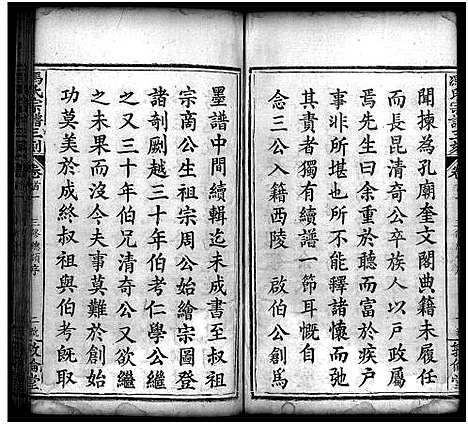 聞揀為孔廟奎文閣典籍未履任
而長昆清奇公卒族人以戶政屬
焉先生曰衰於聽而富於疾戶
事非所堪也所不能釋諸懷而倘
其責者獨有續譜一節耳慨自
念三公入籍西陵 啟伯公創為
墨譜中間續輯迄未成書至叔祖
宗商公生祖宗周公始繪宗圖登
諸剞劂越三十年伯考仁學公繼
之又三十年伯兄清奇公又欲繼
之未果而沒今夫事莫難於創始
功莫美於成終叔祖與伯考既取
馮氏宗譜三刻 卷首一 敦倫堂